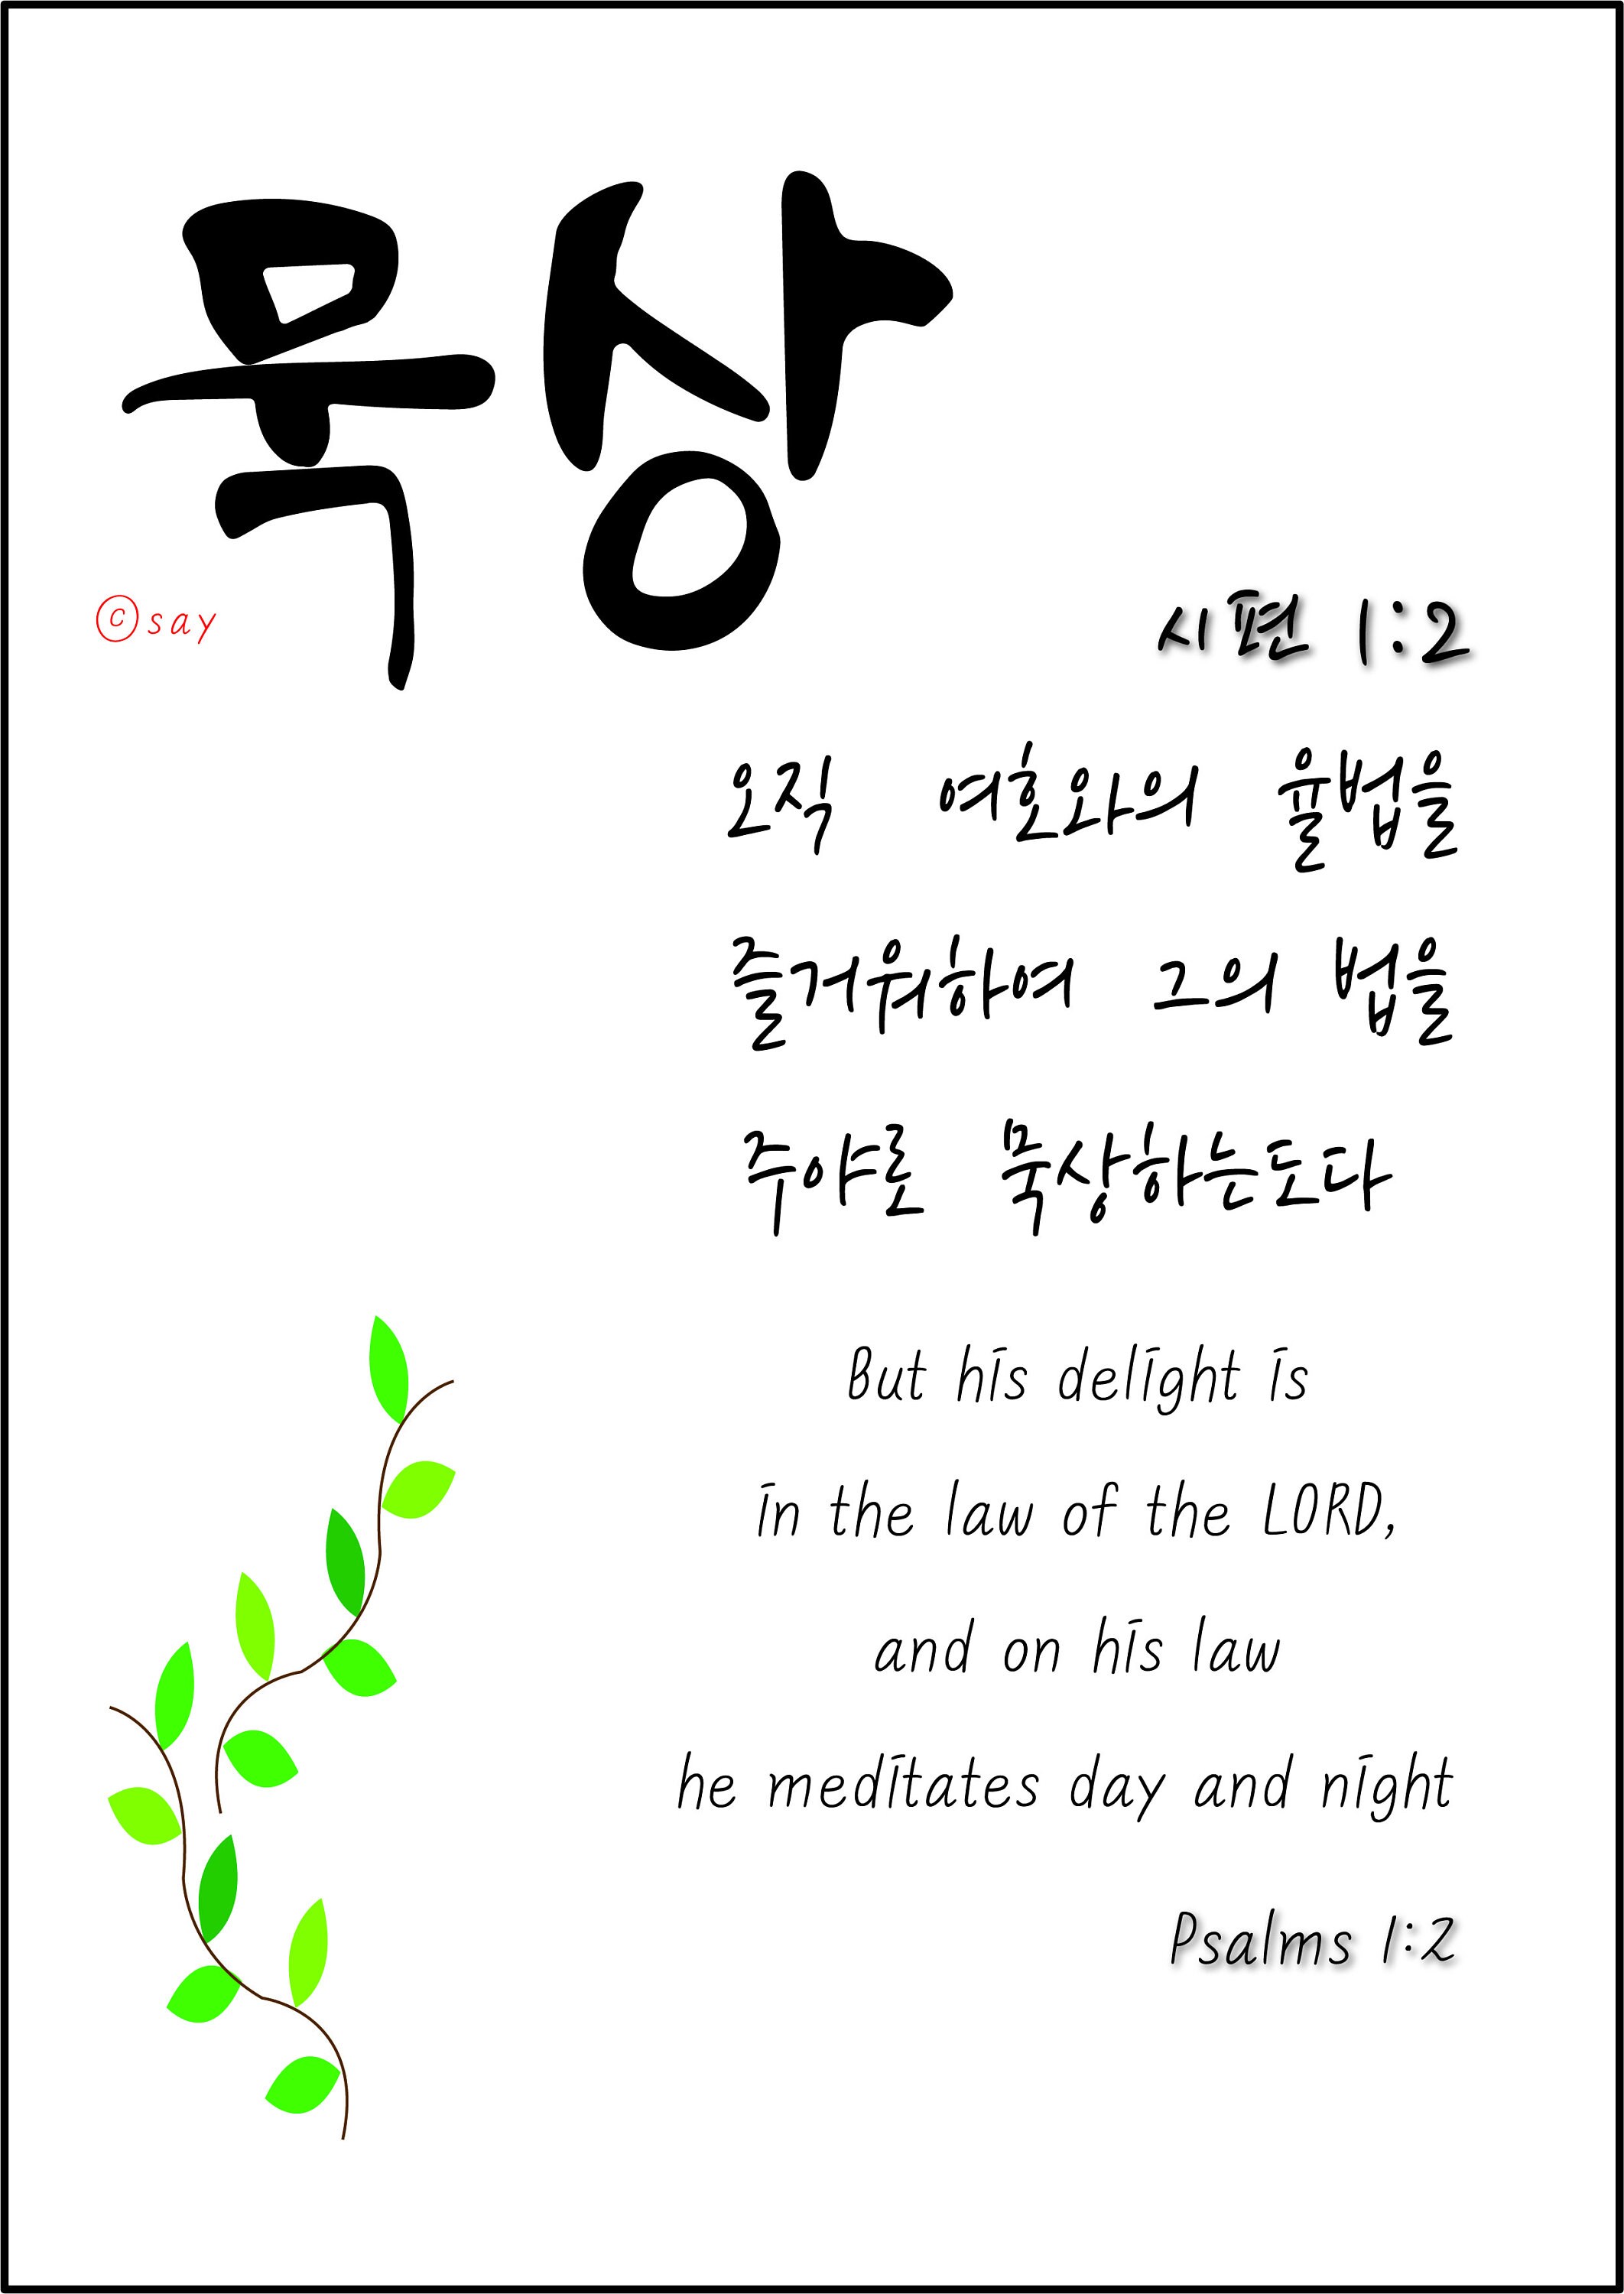 묵상
ⓒsay
시편 1:2
오직 여호와의 율법을
즐거워하여 그의 법을
주야로 묵상하는도다
But his delight is
in the law of the LORD,
and on his law
he meditates day and night
Psalms 1:2